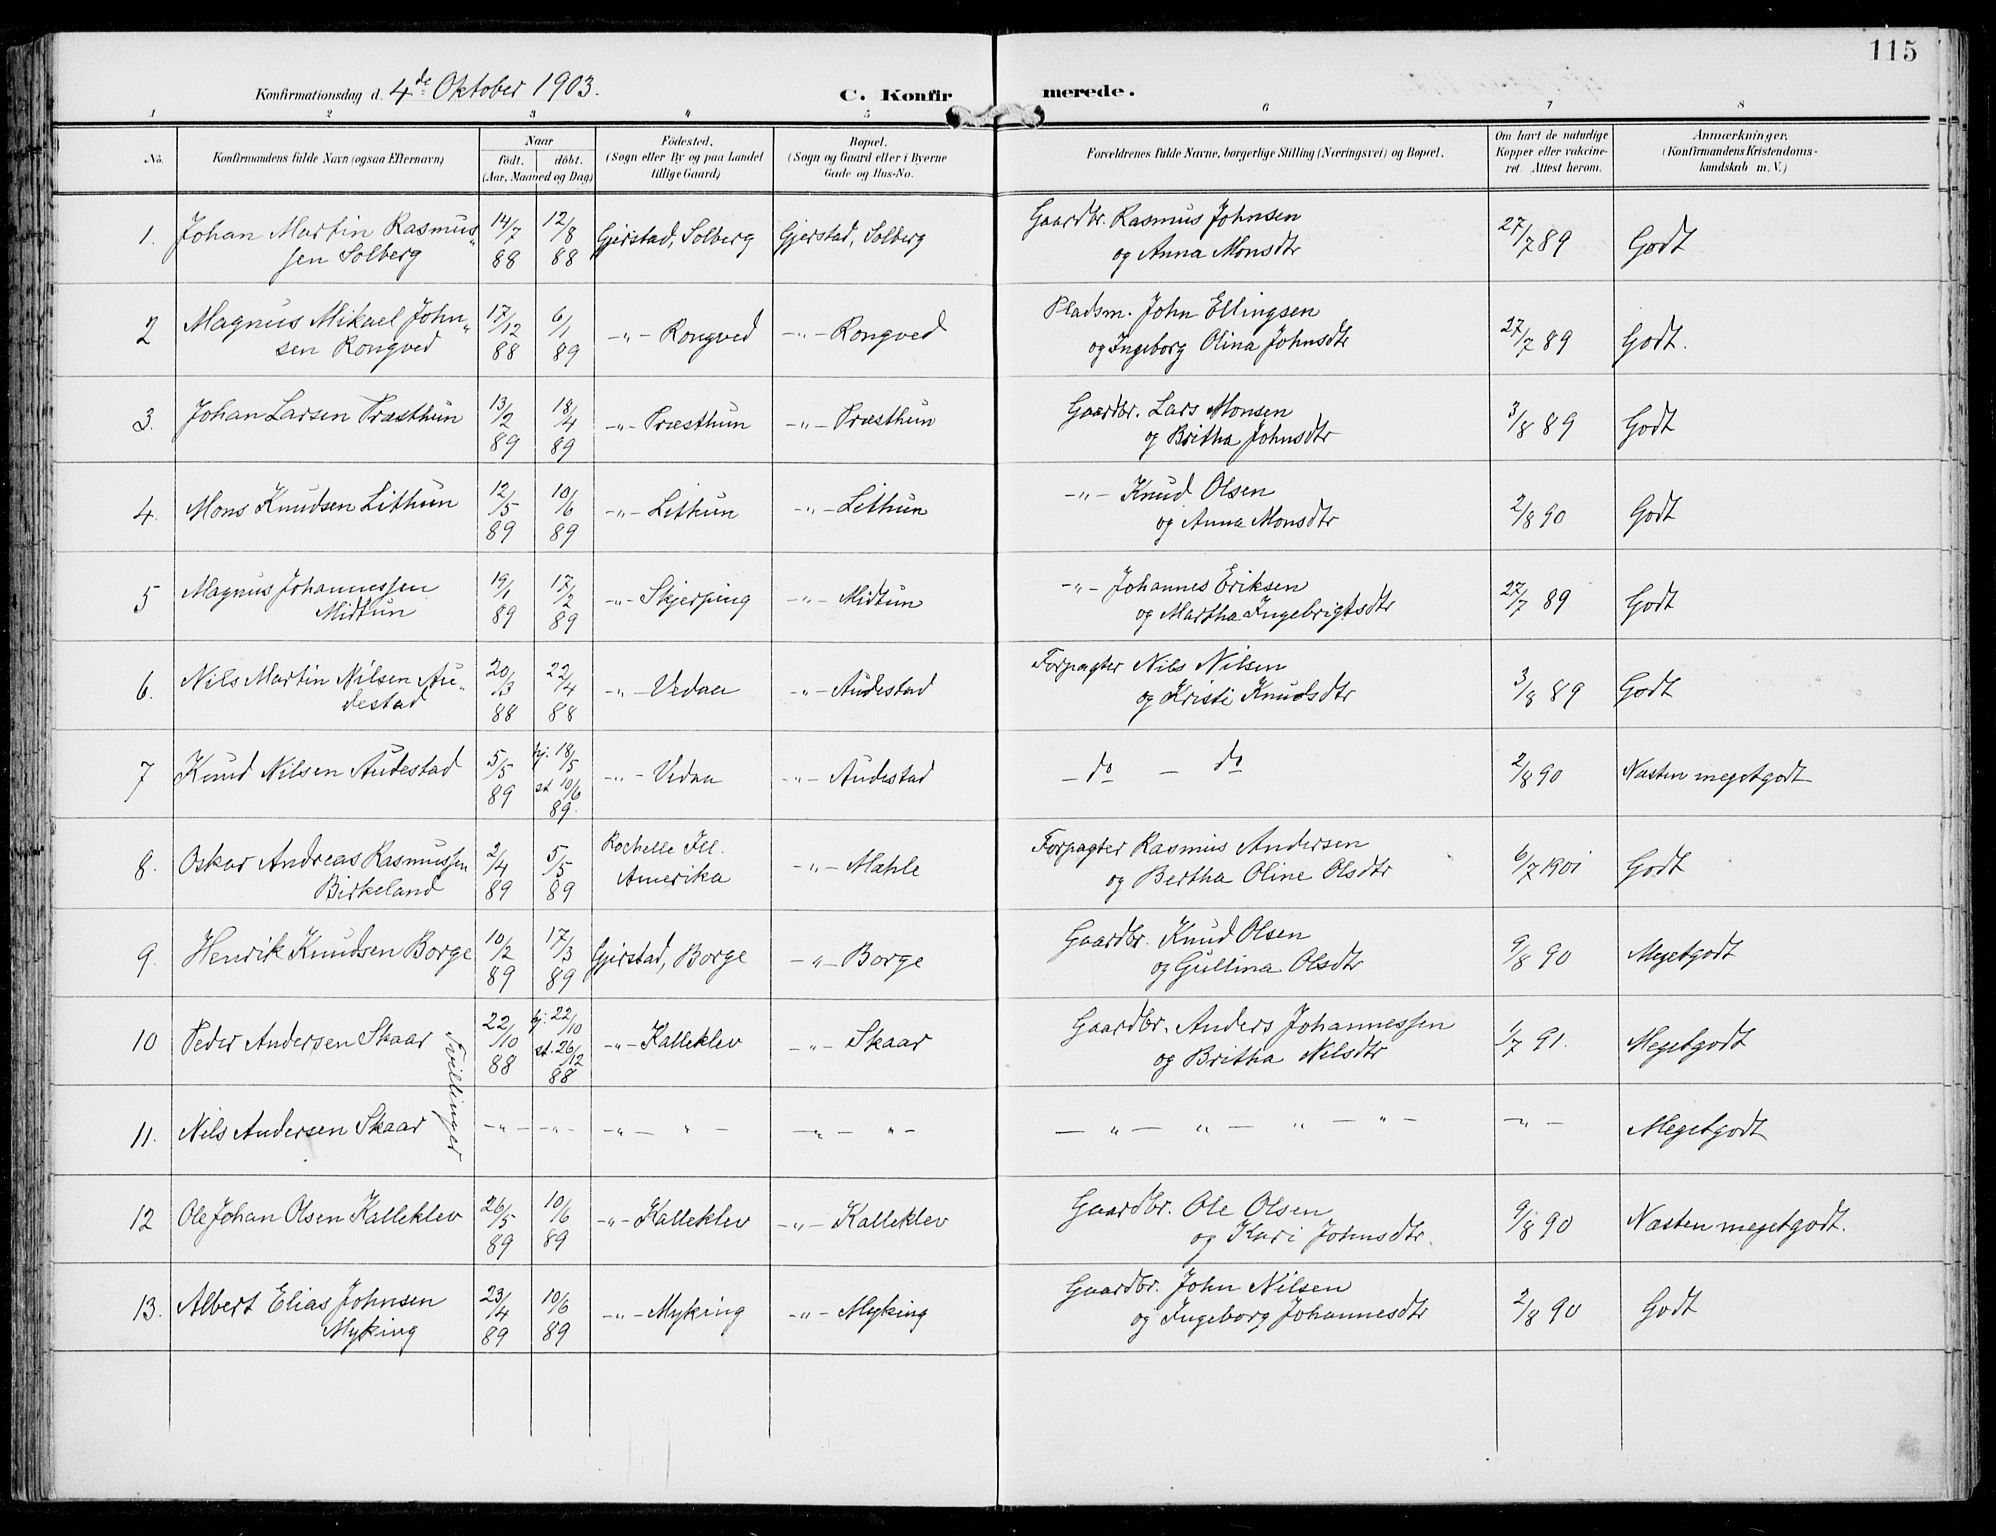 115
Konfirmationsdag d. 4de Oktober 1903.
C. Konfirmerede.
1 2 3 4 5 6 7 8
No. Konfirmandens fulde Navn (ogsaa Efternavn) Naar født. døbt. (Aar, Maaned og Dag) Födested. (Sogn eller By og paa Landet tillige Gaard) Bopæl. (Sogn og Gaard eller i Byerne Gade og Hus-No. Forældrenes fulde Navne, borgerlige Stilling (Næringsvei) og Bopæl. Om havt de naturlige Kopper eller vakcineret. Attest herom. Anmærkninger. (Konfirmandens Kristendomskundskab m. V.)
1. Johan Martin Rasmus„ 14/7 88 12/8 88 Gjerstad, Solberg Gjerstad, Solberg Gaardbr. Rasmus Johnsen 27/7 89 Godt
sen Solberg og Anna Monsdtr
2 Magnus Mikael John„ 17/12 88 6/1 89 -„- Rongved -„- Rongved Pladsm. John Ellingsen 27/7 89 Godt.
sen Rongved og Ingeborg Olina Johnsdtr
3. Johan Larsen Præsthun 13/2 89 18/4 89 -„- Præsthun -„- Præsthun Gaardbr. Lars Monsen 3/8 89 Godt
og Britha Johnsdtr
4. Mons Knudsen Lithun 12/5 89 10/6 89 -„- Lithun -„- Lithun -„- Knud Olsen 2/8 90 Godt
og Anna Monsdtr
5 Magnus Johannessen 19/1 89 17/2 89 -„- Skjerping -„- Midtun -„- Johannes Eriksen 27/7 89 Godt
Midtun og Martha Ingebrigtsdtr
6. Nils Martin Nilsen Au„ 20/3 88 22/4 88 -„- Vedaa -„- Audestad Forpagter Nils Nilsen 3/8 89 Godt
destad og Kristi Knudsdtr
7 Knud Nilsen Audestad 5/5 89 hj. 18/5 st 10/6 89. -„- Vedaa -„- Audestad - do - do 2/8 90 Næsten megetgodt
8. Oskar Andreas Rasmussen 2/4 89 5/5 89 Rochelle Ill. Amerika -„- Mahle Forpagter Rasmus Andersen 6/7 1901 Godt
Birkeland og Bertha Oline Olsdtr
9. Henrik Knudsen Borge 10/2 89 17/3 89 Gjerstad, Borge -„- Borge Gaardbr. Knud Olsen 9/8 90 Megetgodt
og Gullina Olsdtr
10 Peder Andersen Skaar 22/10 88 hj. 22/10 st. 26/12 88 -„- Kalleklev -„- Skaar Gaardbr. Anders Johannessen 1/7 91. Megetgodt
og Britha Nilsdtr
Tvillinger
11. Nils Andersen Skaar -„- -„- -„- „ - -„- „ - - „ - „ - „ - „ - -„- Megetgodt
12 Ole Johan Olsen Kalleklev 26/5 89 10/6 89 -„- Kalleklev -„- Kalleklev Gaardbr. Ole Olsen 9/8 90 Næsten megetgodt.
og Kari Johnsdtr.
13. Albert Elias Johnsen 23/4 89 10/6 89 -„- Myking -„- Myking Gaardbr. John Nilsen 2/8 90 Godt
Myking og Ingeborg Johannesdtr